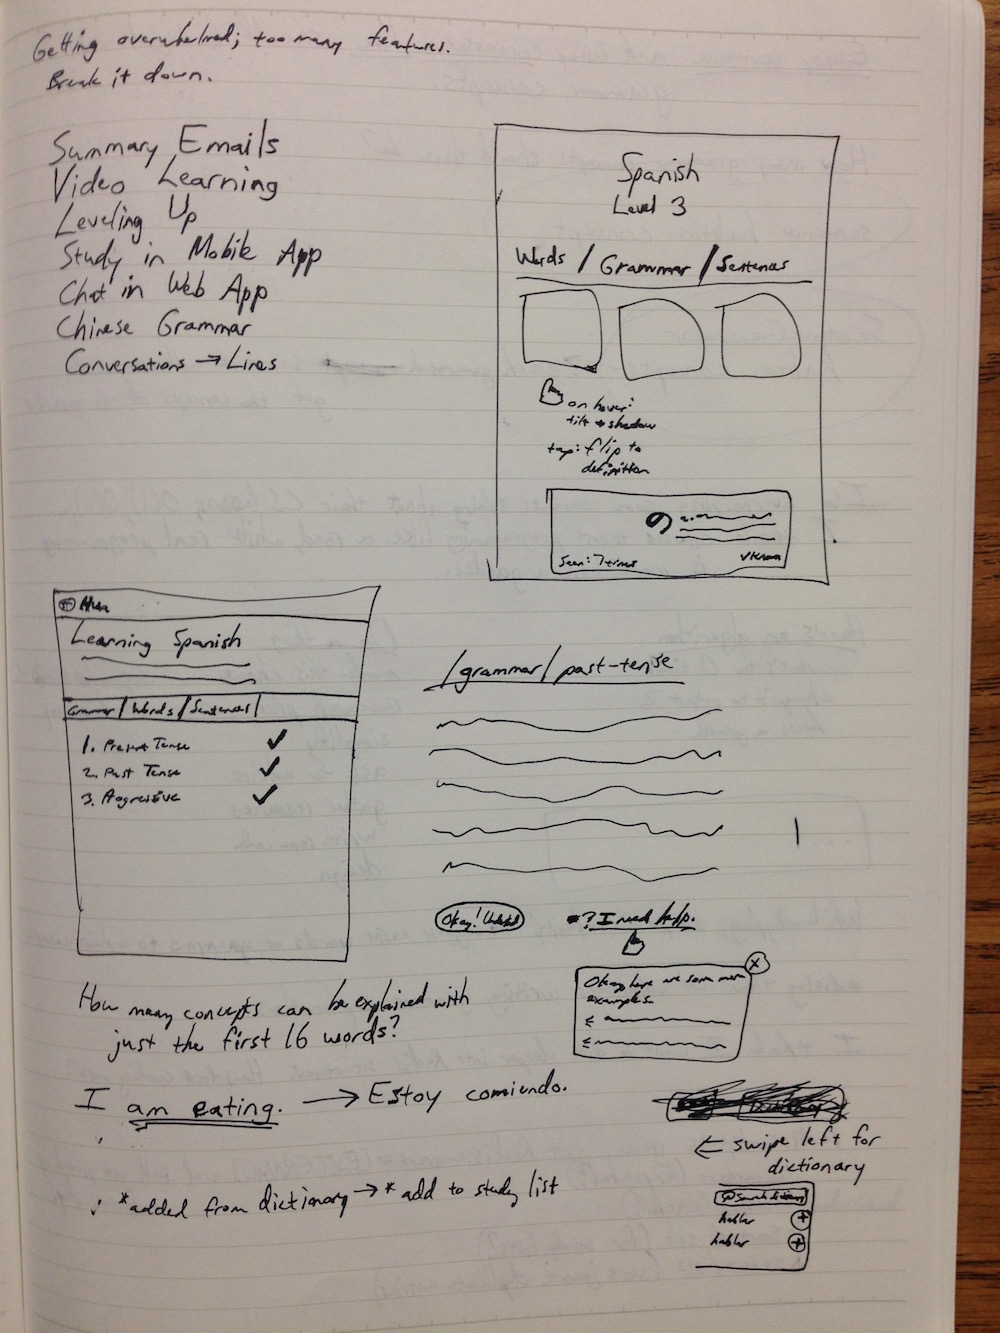 Getting overwhelmed; too many features.
Break it down.
Summary Emails
Video Learning
Leveling Up
Study in Mobile App
Chat in Web App
Chinese Grammar
Conversations → Lines
Spanish
Level 3
Words / Grammar / Sentences
on hover:
tilt + shadow
tap: flip to
definition
Seen: 7 times ✓Known
Learning Spanish
Grammar / Words / Sentences
1. Present Tense ✓
2. Past Tense ✓
3. Progressive ✓
/grammar/past-tense
Okay!
? I need help.
X
Okay here are some more
examples.
How many concepts can be explained with
just the first 16 words?
I am eating. → Estoy comiendo.
← swipe left for
dictionary
*added from dictionary → *add to study list
Search dictionary
hablar +
hablar +